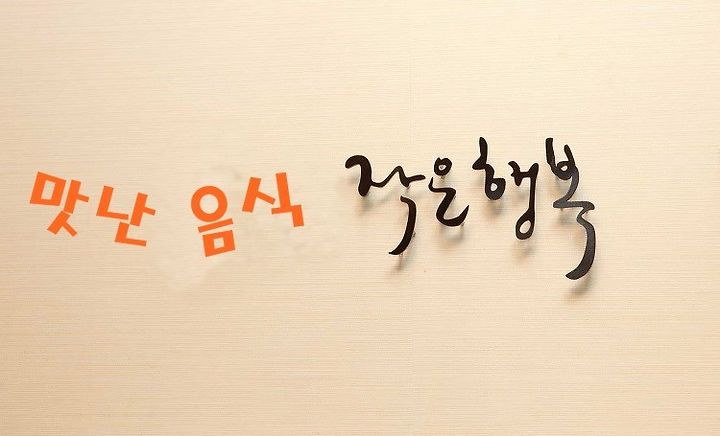 맛난 음식 작은행복